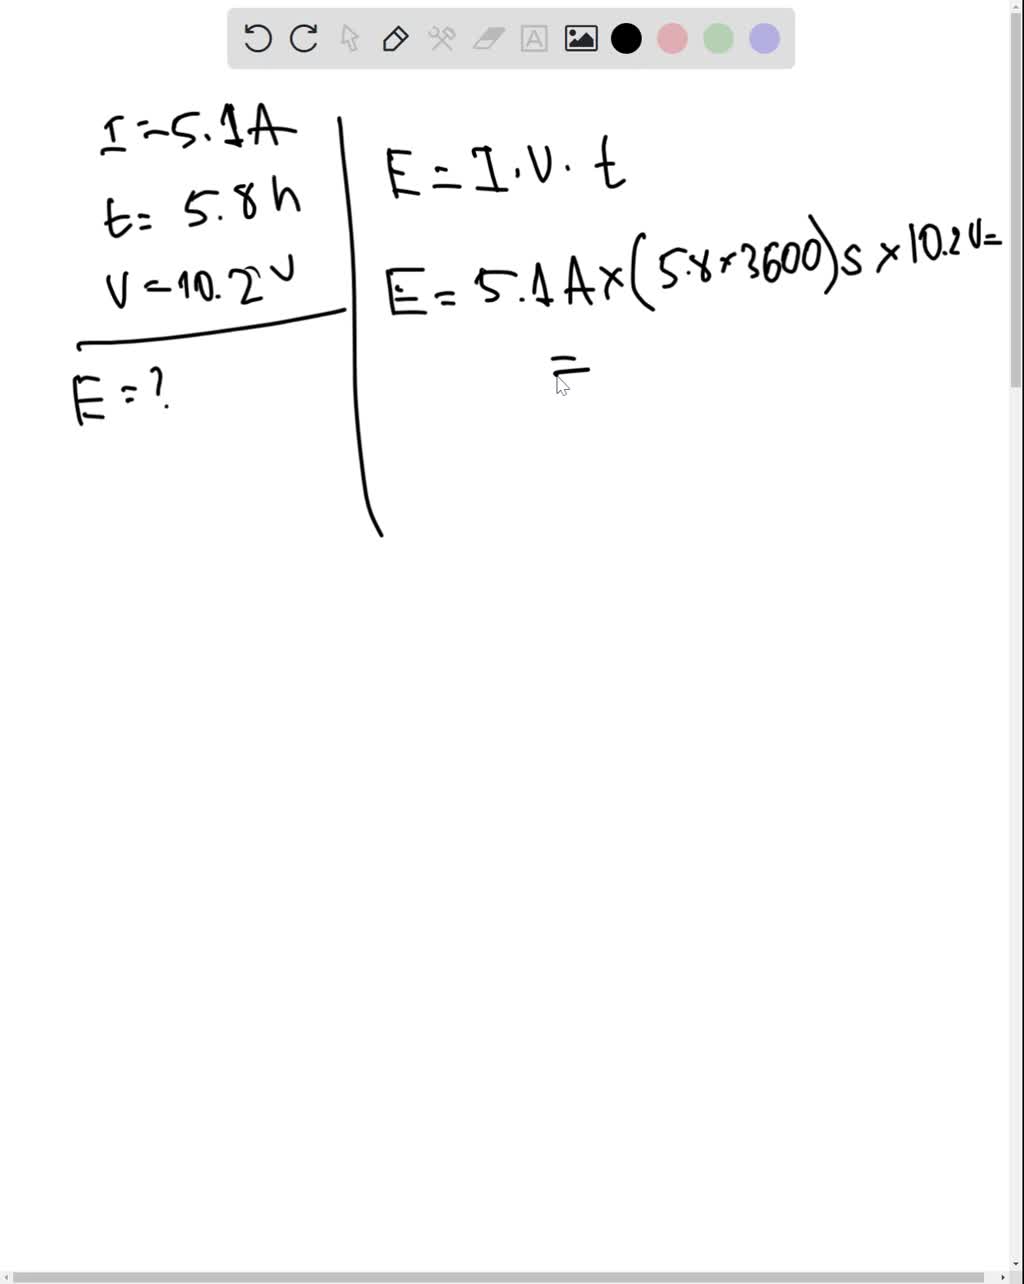 I = 5.1A
t = 5.8 h
V = 10.2 V
E = ?
E = I · V · t
E = 5.1 A × (5.8 × 3600) s × 10.2 V =
=
A